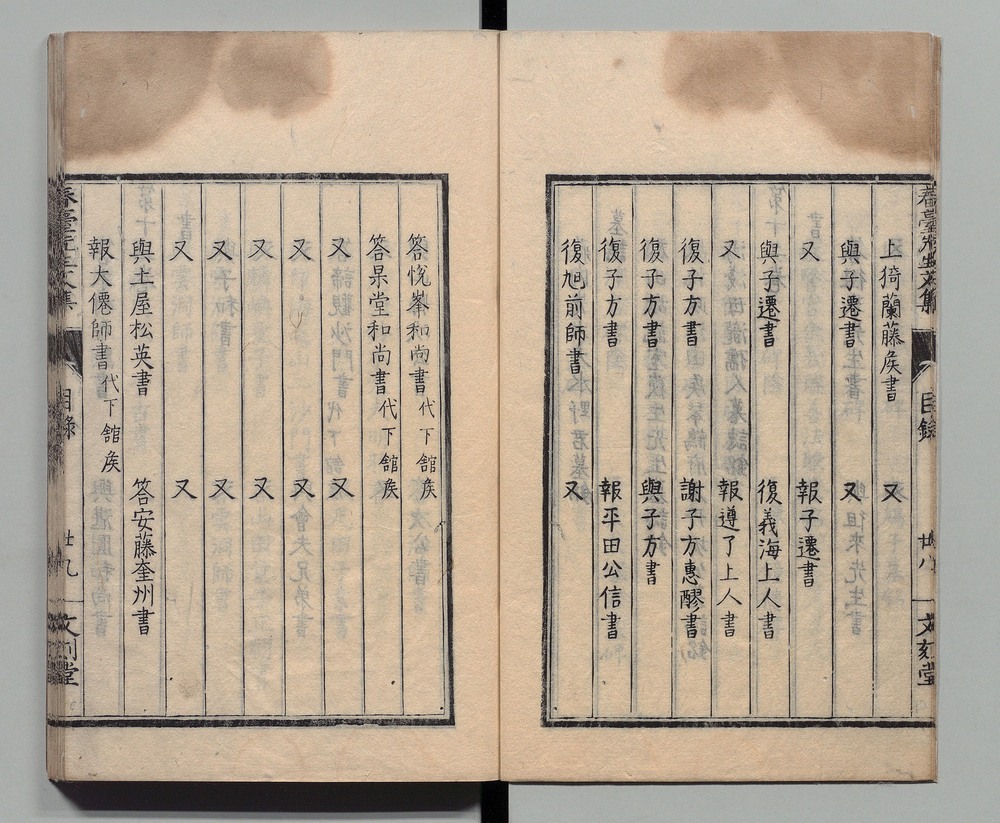 春臺先生文集　目錄　廿八　文刻堂
上猗蘭藤矦書　又
與子遷書　又
又　報子遷書
與子遷書　復義海上人書
又　報遵了上人書
復子方書　謝子方惠醪書
復子方書　與子方書
復子方書　報平田公信書
復旭前師書　又
答悅峯和尚書代下舘矦
答杲堂和尚書代下舘矦
又　又
又　又
又　又
又　又
又　又
與土屋松英書　答安藤奎州書
報大僊師書代下舘矦
春臺先生文集　目錄　廿九　文刻堂